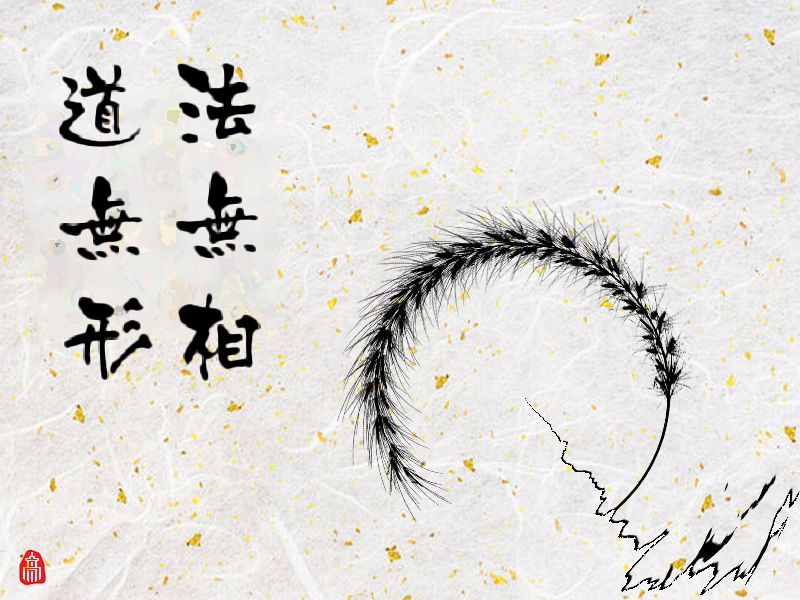 法無相
道無形